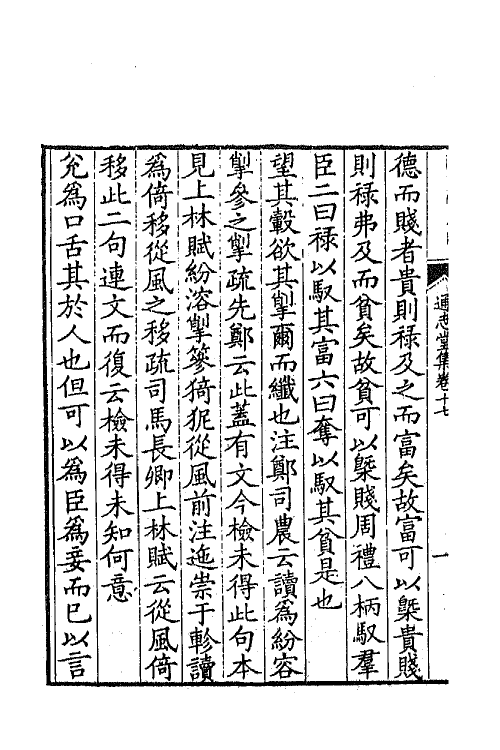 德而賤者貴則禄及之而富矣故富可以槩貴賤
則禄弗及而貧矣故貧可以槩賤周禮八柄馭羣
臣二曰禄以馭其富六曰奪以馭其貧是也
望其轂欲其掣爾而纖也注鄭司農云讀為紛容
掣參之掣疏先鄭云此蓋有文今檢未得此句本
見上林賦紛溶掣蔘猗狔從風前注迆崇于軫讀
為倚移從風之移疏司馬長卿上林賦云從風倚
移此二句連文而復云檢未得未知何意
兊為口舌其於人也但可以為臣為妾而已以言
通志堂集卷十七
一